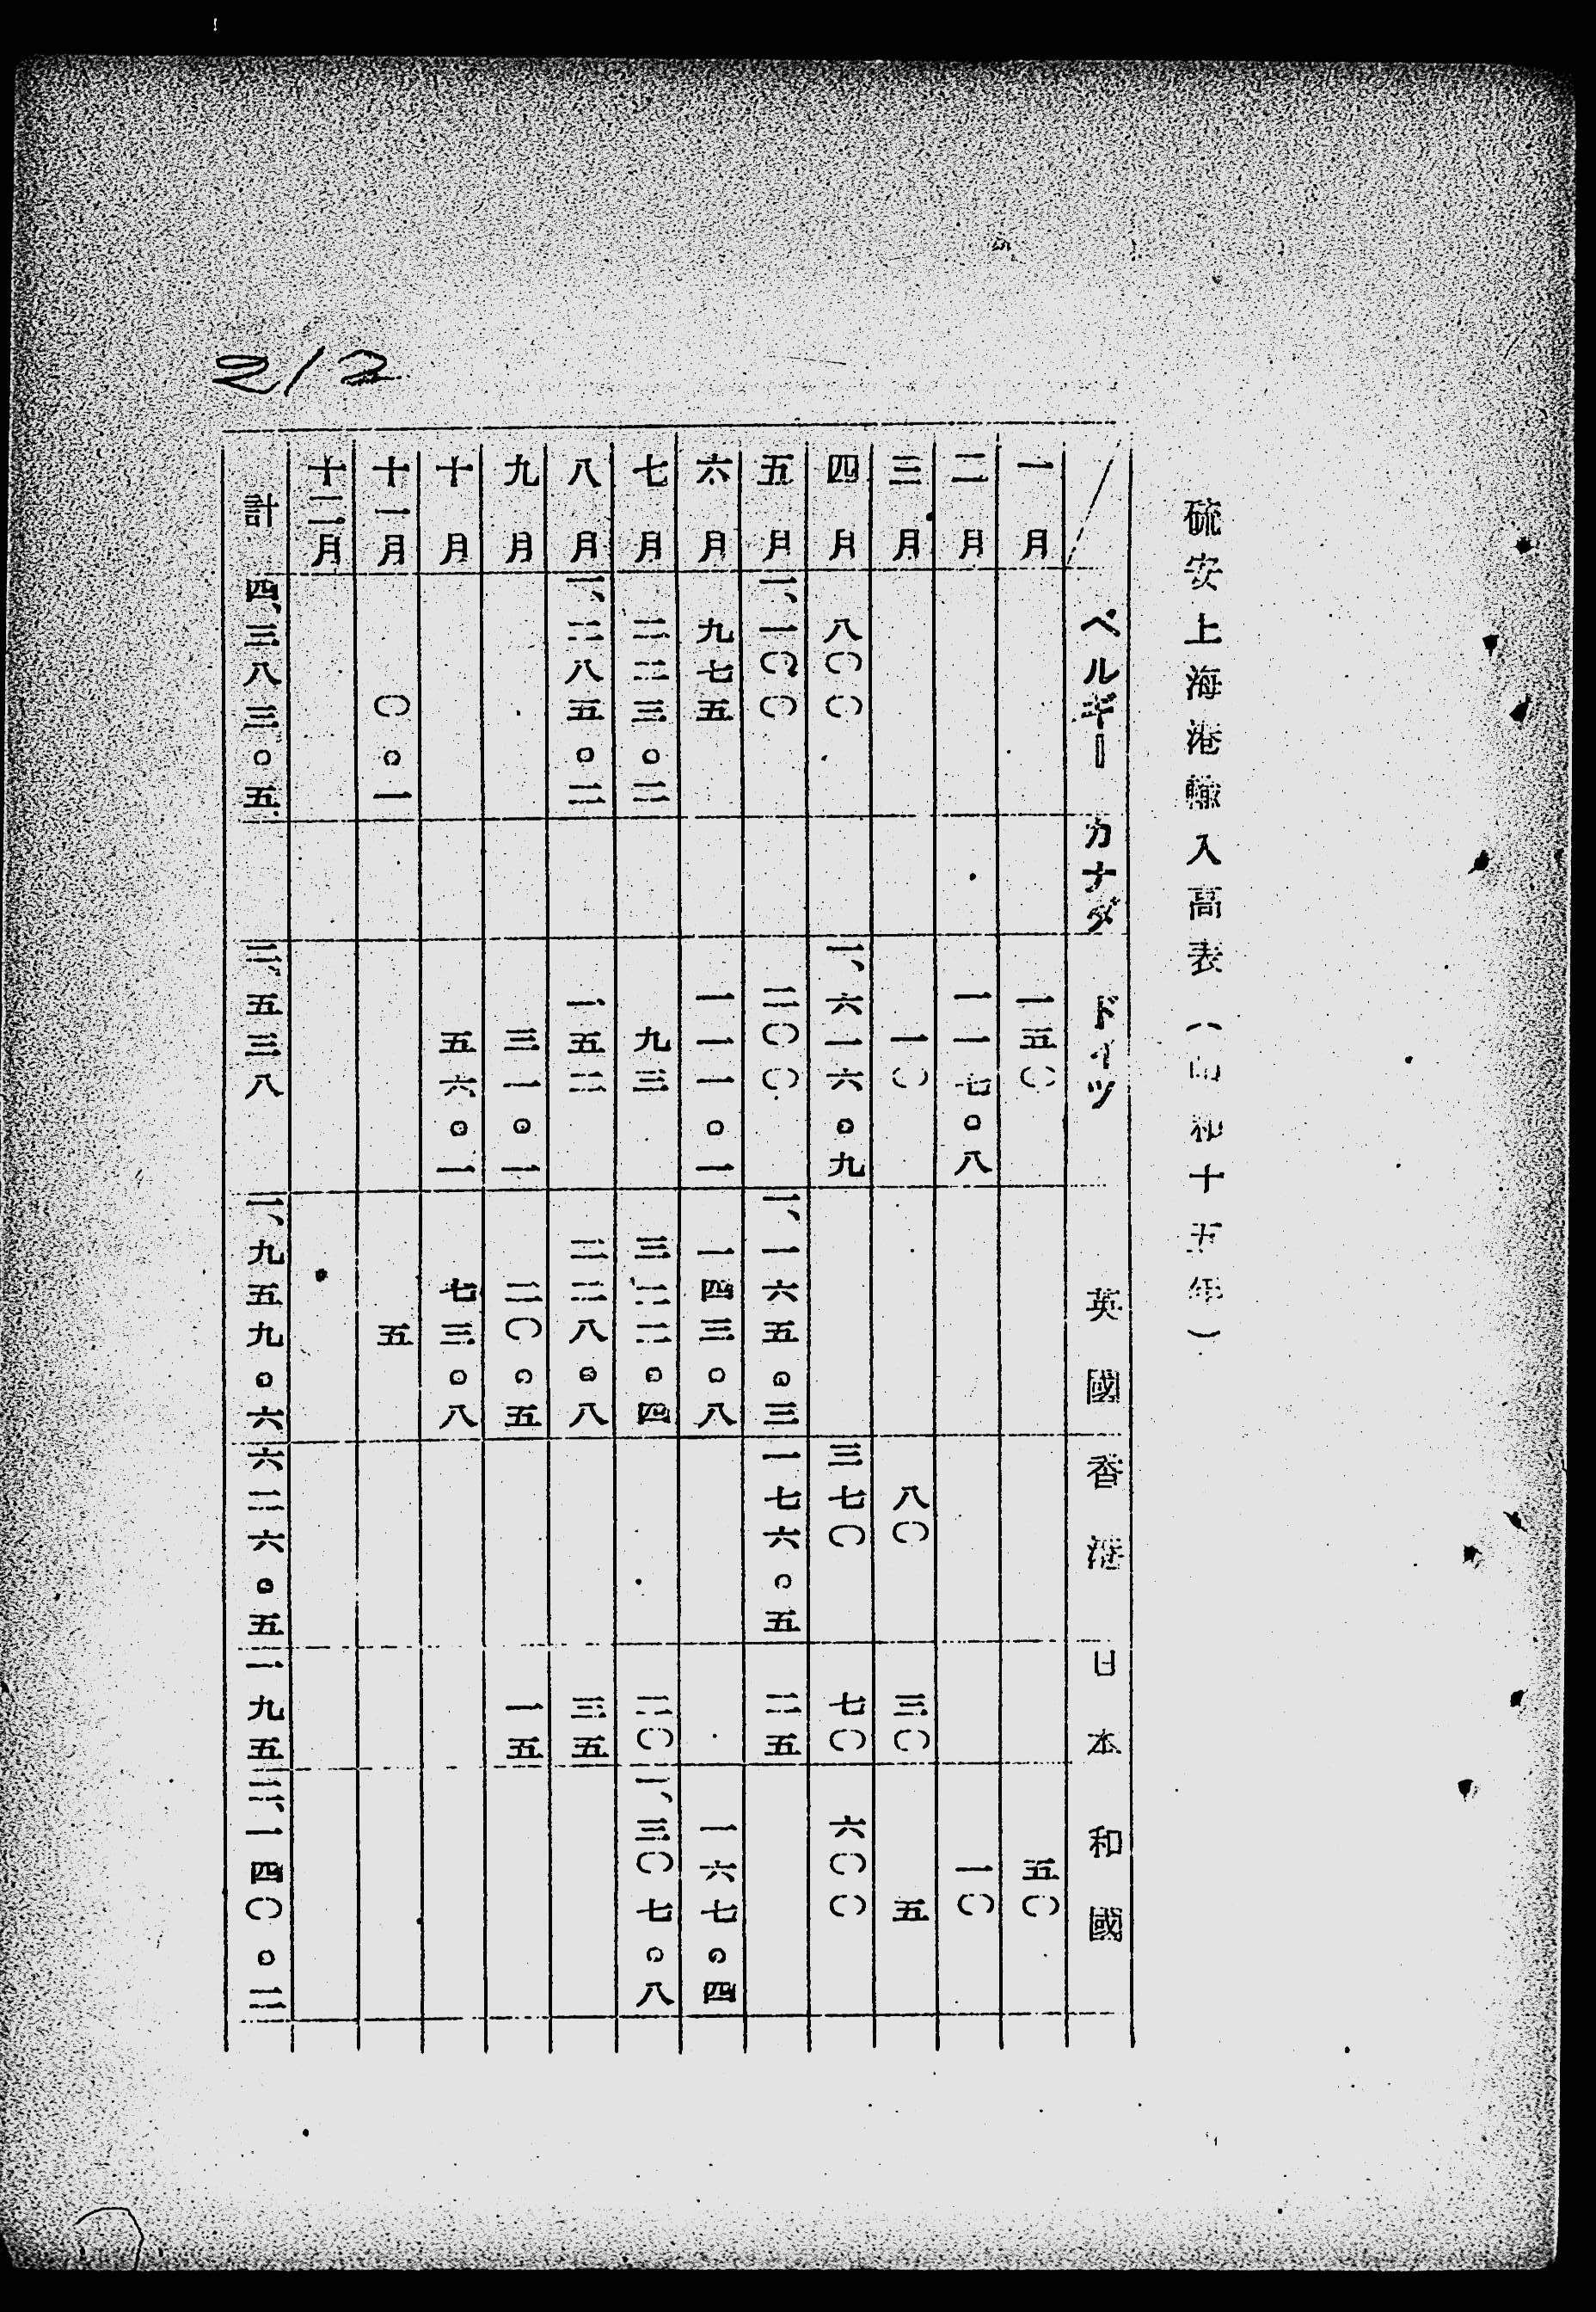 硫安上海港輸入高表（昭和十五年）
ベルギー カナダ ドイツ 英國 香港 日本 和國
一月 一五〇 五〇
二月 一一七。八 一〇
三月 一〇 八〇 三〇 五
四月 八〇〇 一、六一六。九 三七〇 七〇 六〇〇
五月 一、一〇〇 二〇〇 一、一六五。三 一七六。五 二五
六月 九七五 一一一。一 一四三。八 一六七。四
七月 二二三。二 九三 三二二。四 二〇 一、三〇七。八
八月 一、二八五。二 一五二 二二八。八 三五
九月 三一。一 二〇。五 一五
十月 五六。一 七三。八
十一月 〇。一 五
十二月
計 四、三八三。五 二、五三八 一、九五九。六 六二六。五 一九五 二、一四〇。二
212